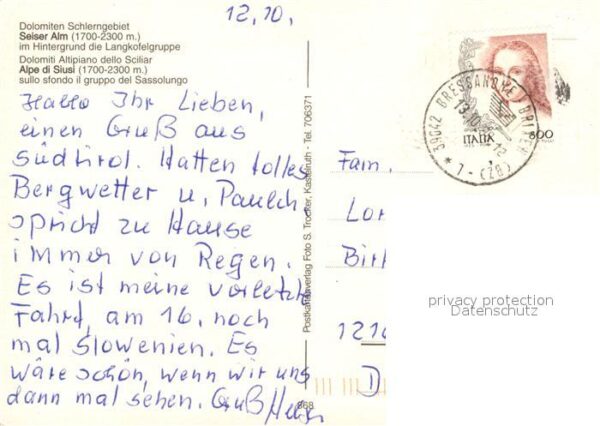 12.10.
Dolomiten Schlerngebiet
Seiser Alm (1700-2300 m.)
im Hintergrund die Langkofelgruppe
Dolomiti Altipiano dello Sciliar
Alpe di Siusi (1700-2300 m.)
sullo sfondo il gruppo del Sassolungo
Hallo Ihr Lieben,
einen Gruß aus
Südtirol. Hatten tolles
Bergwetter u.
spricht zu Hause
immer von Regen.
Es ist meine vorletzte
Fahrt, am 16. noch
mal Slowenien. Es
wäre schön, wenn wir uns
dann mal sehen. Gruß
Postkartenverlag Foto S. Trocker, Kastelruth - Tel. 706371
868
39042 BRESSANONE BRIXEN
* 7 - (ZB)
13.10.
12
ITALIA
800
Fam.
Lor
Birk
1210
D
privacy protection
Datenschutz